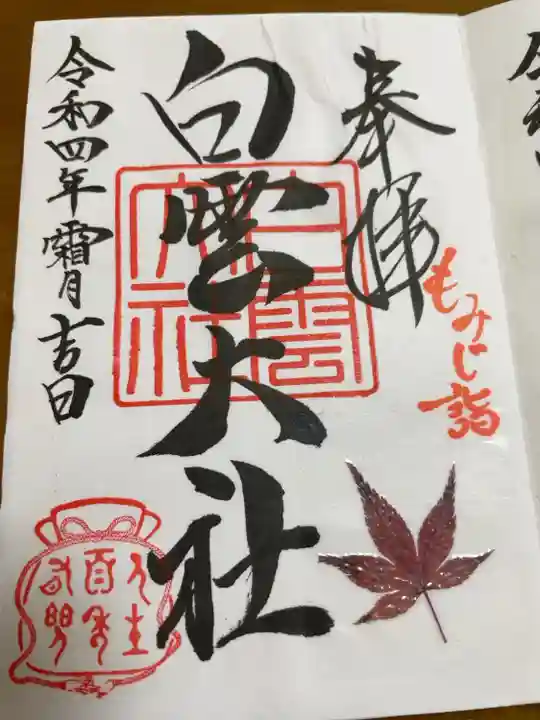 奉拝
もみじ詣
白雲大社
白雲大社
令和四年霜月吉日